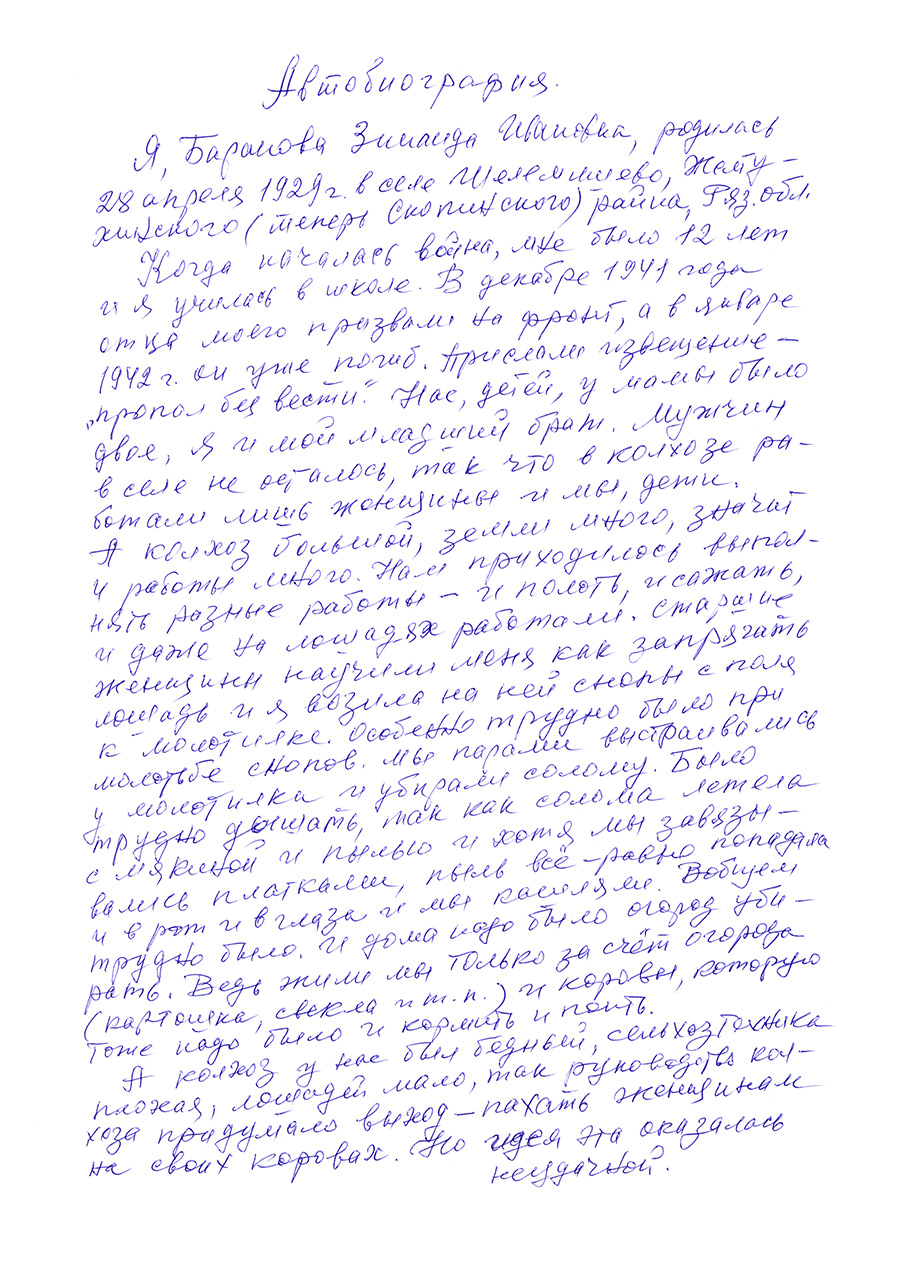 Автобиография.
Я, Баранова Зинаида Ивановна, родилась
28 апреля 1929 г. в селе Шелемишево, Желту-
хинского (теперь Скопинского) райна, Ряз. обл.
Когда началась война, мне было 12 лет
и я училась в школе. В декабре 1941 года
отца моего призвали на фронт, а в январе
1942 г. он уже погиб. Прислали извещение –
„пропал без вести“. Нас, детей, у мамы было
двое, я и мой младший брат. Мужчин
в селе не осталось, так что в колхозе ра-
ботали лишь женщины и мы, дети.
А колхоз большой, земли много, значит
и работы много. Нам приходилось выпол-
нять разные работы – и полоть, и сажать,
и даже на лошадях работали. Старшие
женщины научили меня как запрягать
лошадь и я возила на ней снопы с поля
к молотилке. Особенно трудно было при
молотьбе снопов. Мы парами выстраивались
у молотилки и убирали солому. Было
трудно дышать, так как солома летела
с мякиной и пылью и хотя мы завязы-
вались платками, пыль всё-равно попадала
и в рот и в глаза и мы кашляли. Вобщем
трудно было. И дома надо было огород уби-
рать. Ведь жили мы только за счёт огорода
(картошка, свекла и т.п.) и коровы, которую
тоже надо было и кормить и поить.
А колхоз у нас был бедный, сельхозтехника
плохая, лошадей мало, так руководство кол-
хоза придумало выход – пахать женщинам
на своих коровах. Но идея эта оказалась
неудачной.